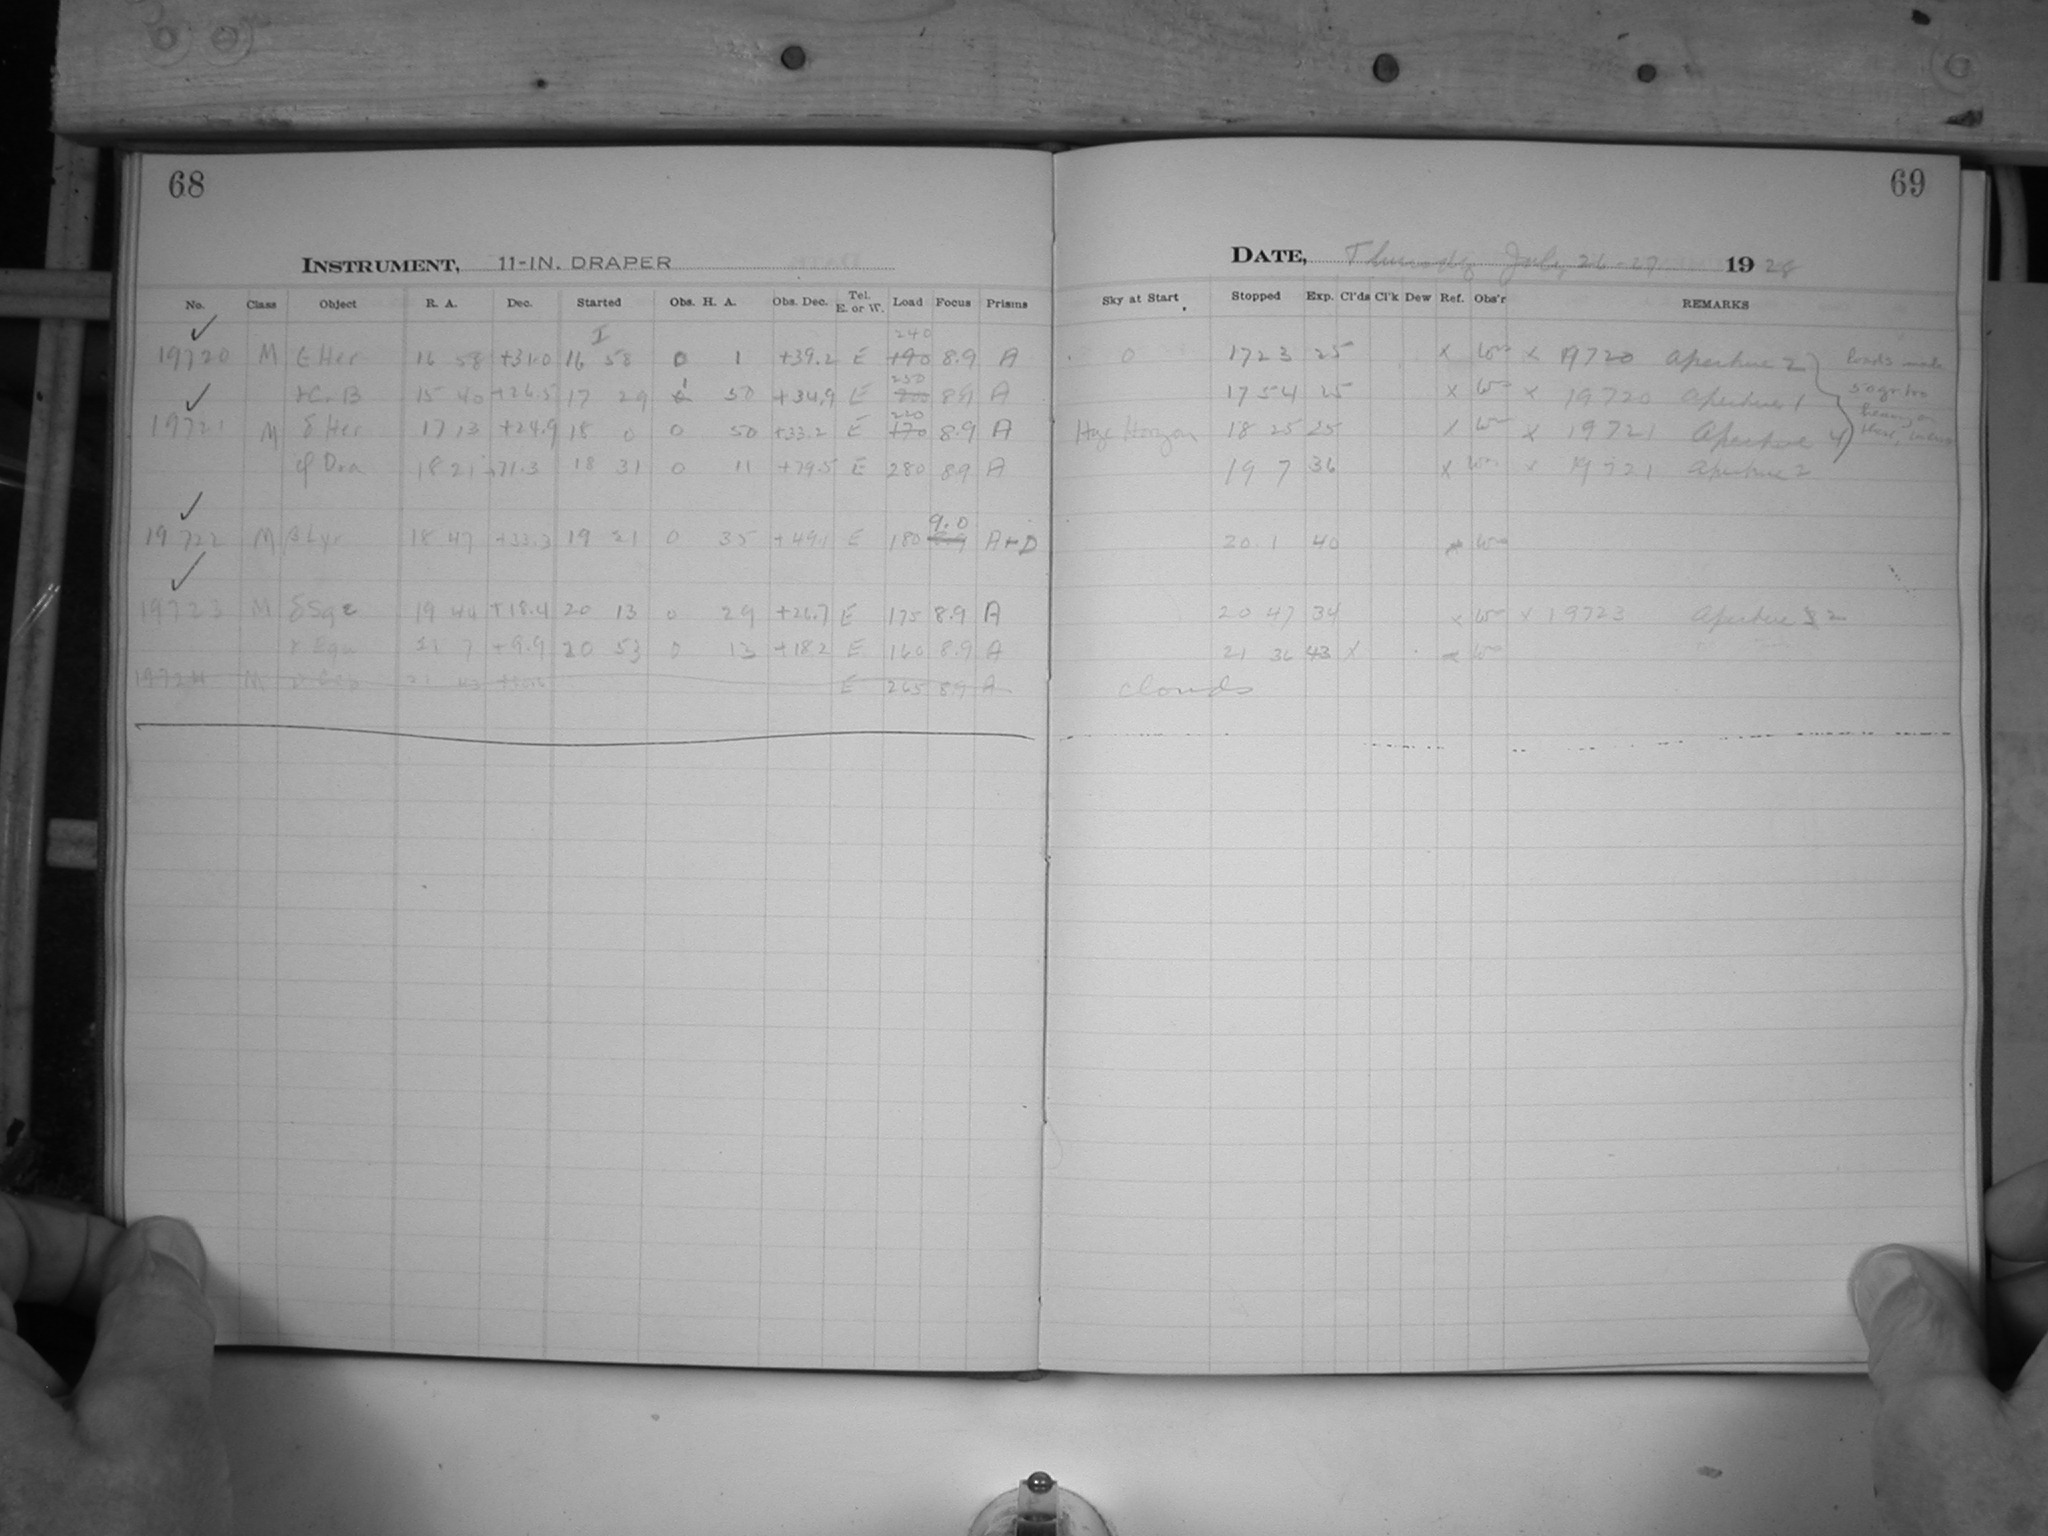 68
INSTRUMENT, 11-IN. DRAPER
No. Class Object R. A. Dec. Started Obs. H. A. Obs. Dec. Tel. E. or W. Load Focus Prisms
I 240
19720 M ε Her 16 58 +31.0 16 58 0 1 +39.2 E 190 8.9 A
250
15 40 +26.5 17 29 1 50 +34.9 E 8.9 A
220
19721 M δ Her 17 13 +24.9 18 0 0 50 +33.2 E 170 8.9 A
φ Dra 18 21 +71.3 18 31 0 11 +79.5 E 280 8.9 A
9.0
19722 M β Lyr 18 47 +33.3 19 21 0 35 +49.1 E 180 8.9 A+D
19723 M δ Sge 19 44 +18.4 20 13 0 29 +26.7 E 175 8.9 A
γ Equ 21 7 +9.9 20 53 0 13 +18.2 E 160 8.9 A
19724 M 21 43 E 265 8.9 A
69
DATE, Thursday July 26-27 1928
Sky at Start Stopped Exp. Cl'ds Cl'k Dew Ref. Obs'r REMARKS
0 17 23 25 x x 19720 Aperture 2
17 54 25 x x 19720 Aperture 1
Haze Horizon 18 25 25 x x 19721 Aperture 4
19 7 36 x x 19721 Aperture 2
Loads made
50 gr too
heavy on
these,
20 1 40
20 47 34 x x 19723 Aperture 2
21 36 43 x
clouds